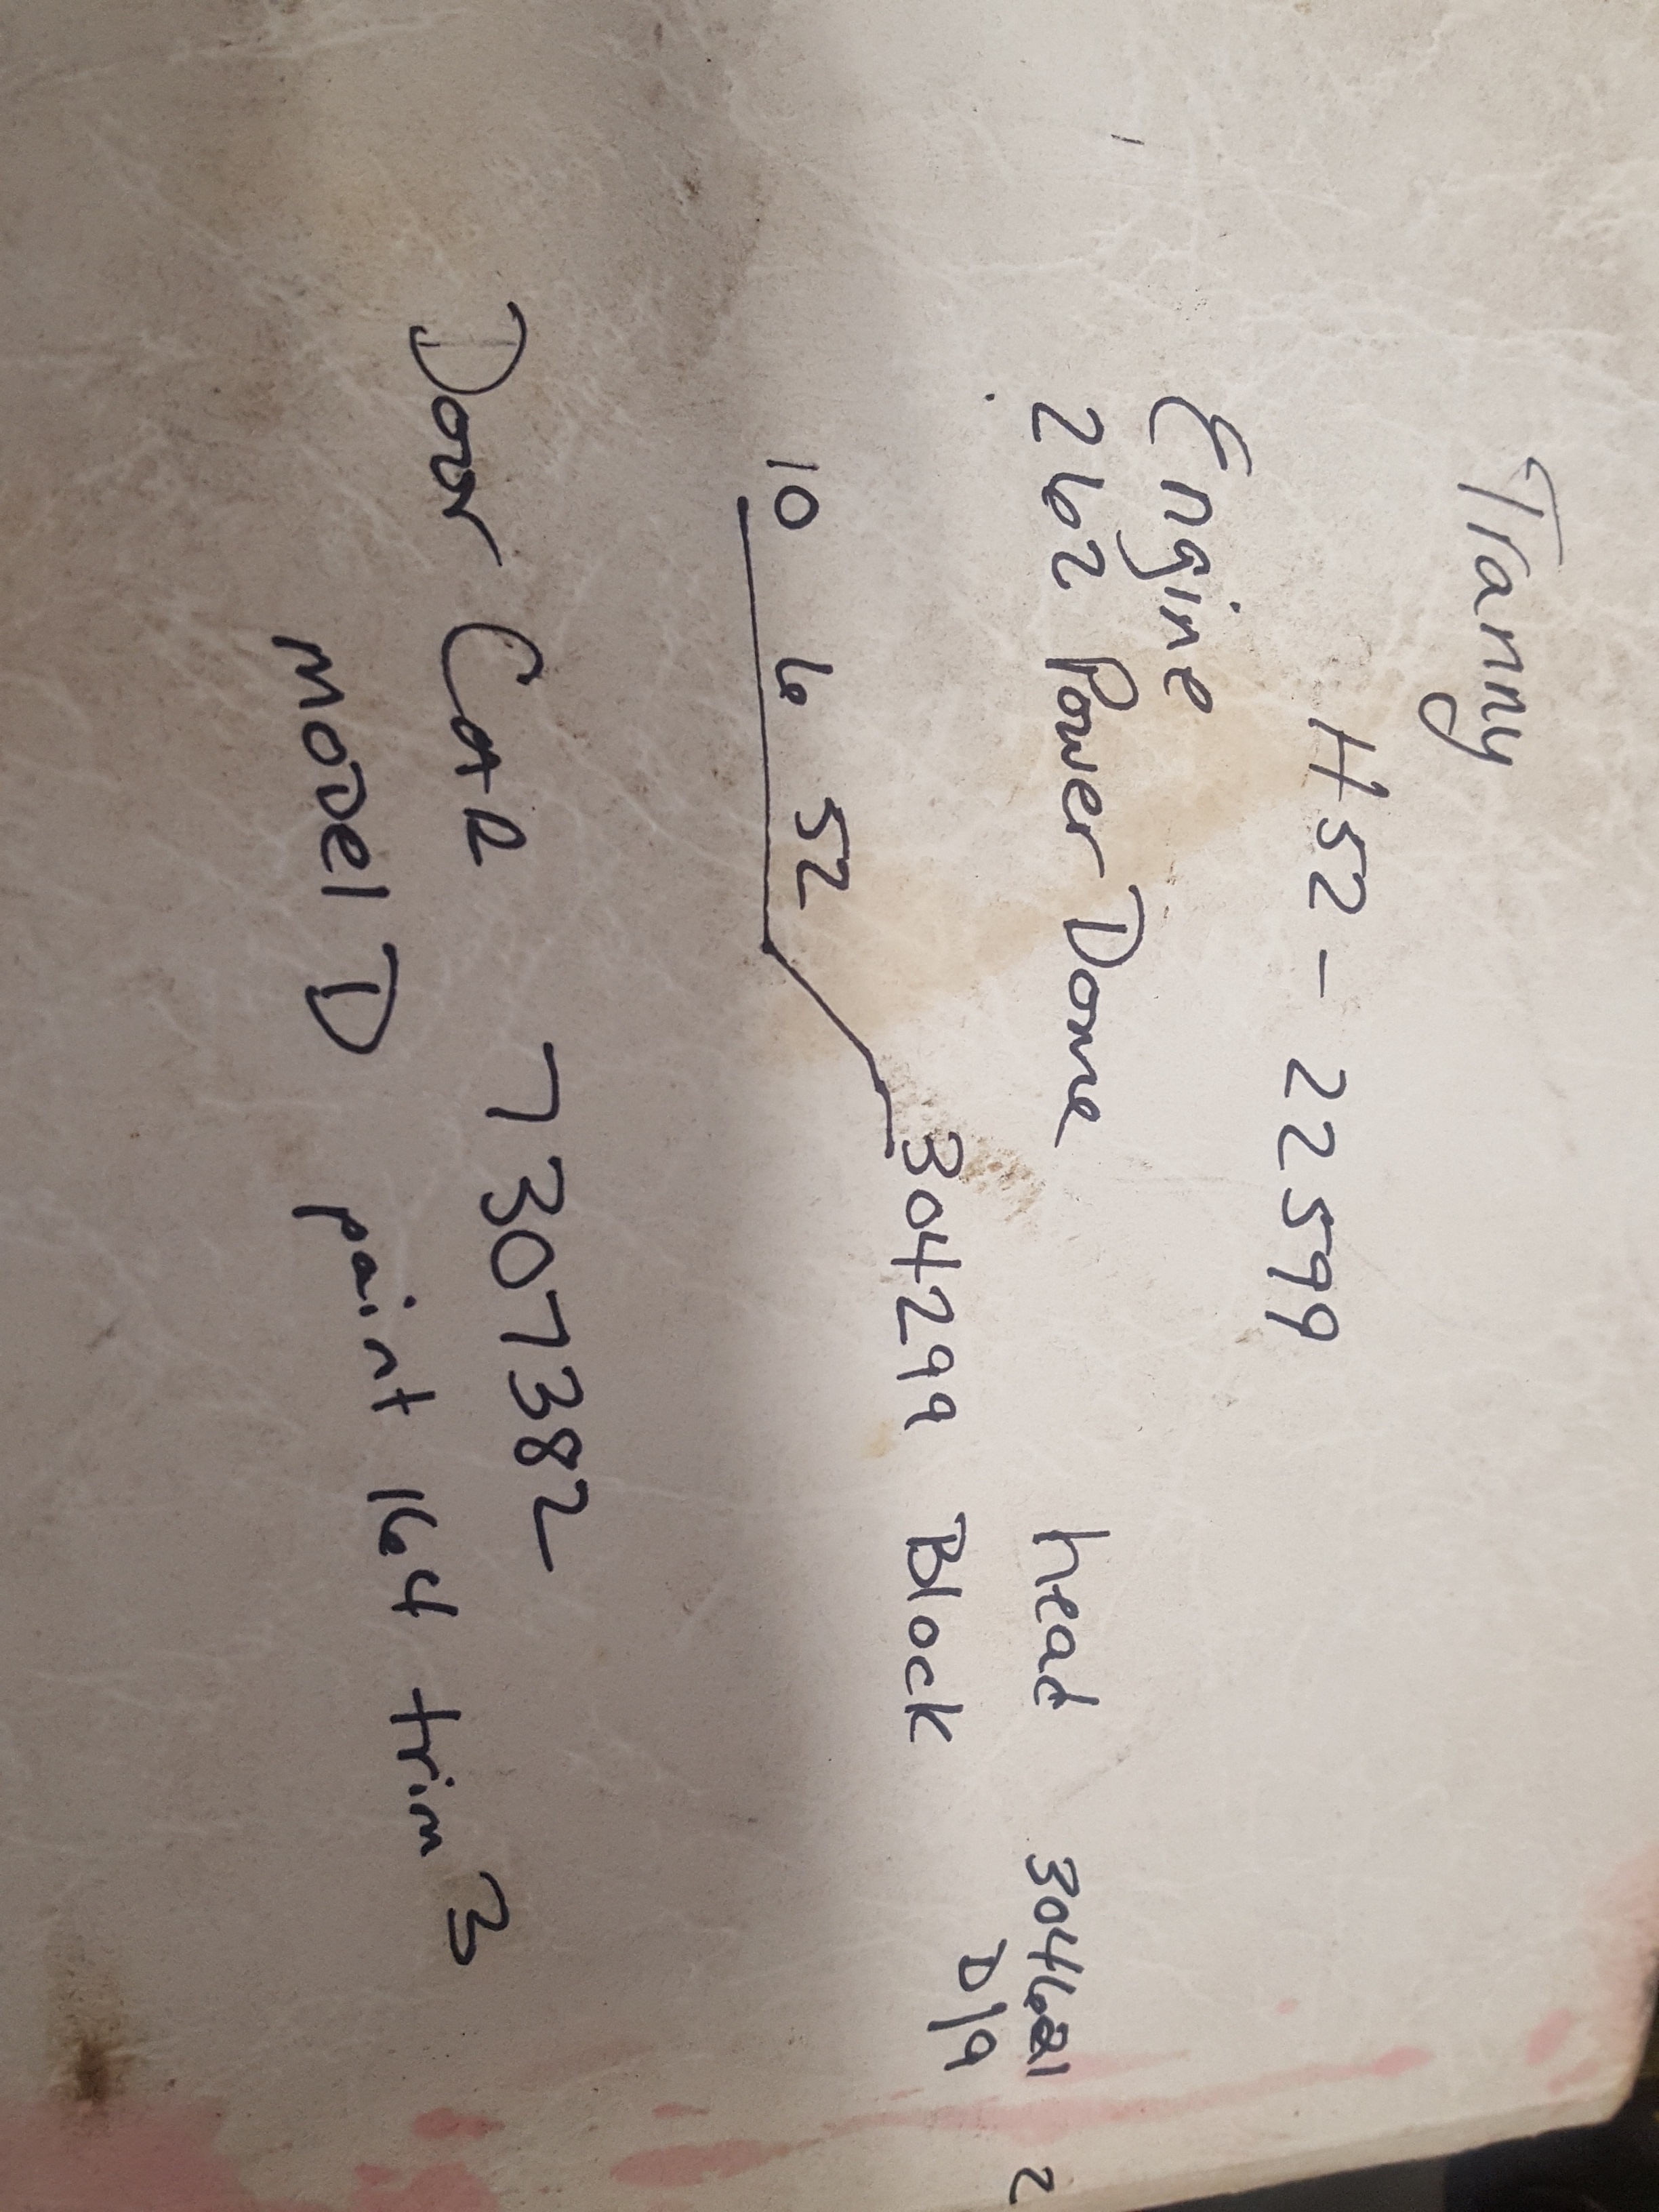 Tranny
H52-22599
Engine
262 Power Dome head 304621 2
D19
304299 Block
10 6 52
Door CAR 7307382
MODel D paint 164 trim 3